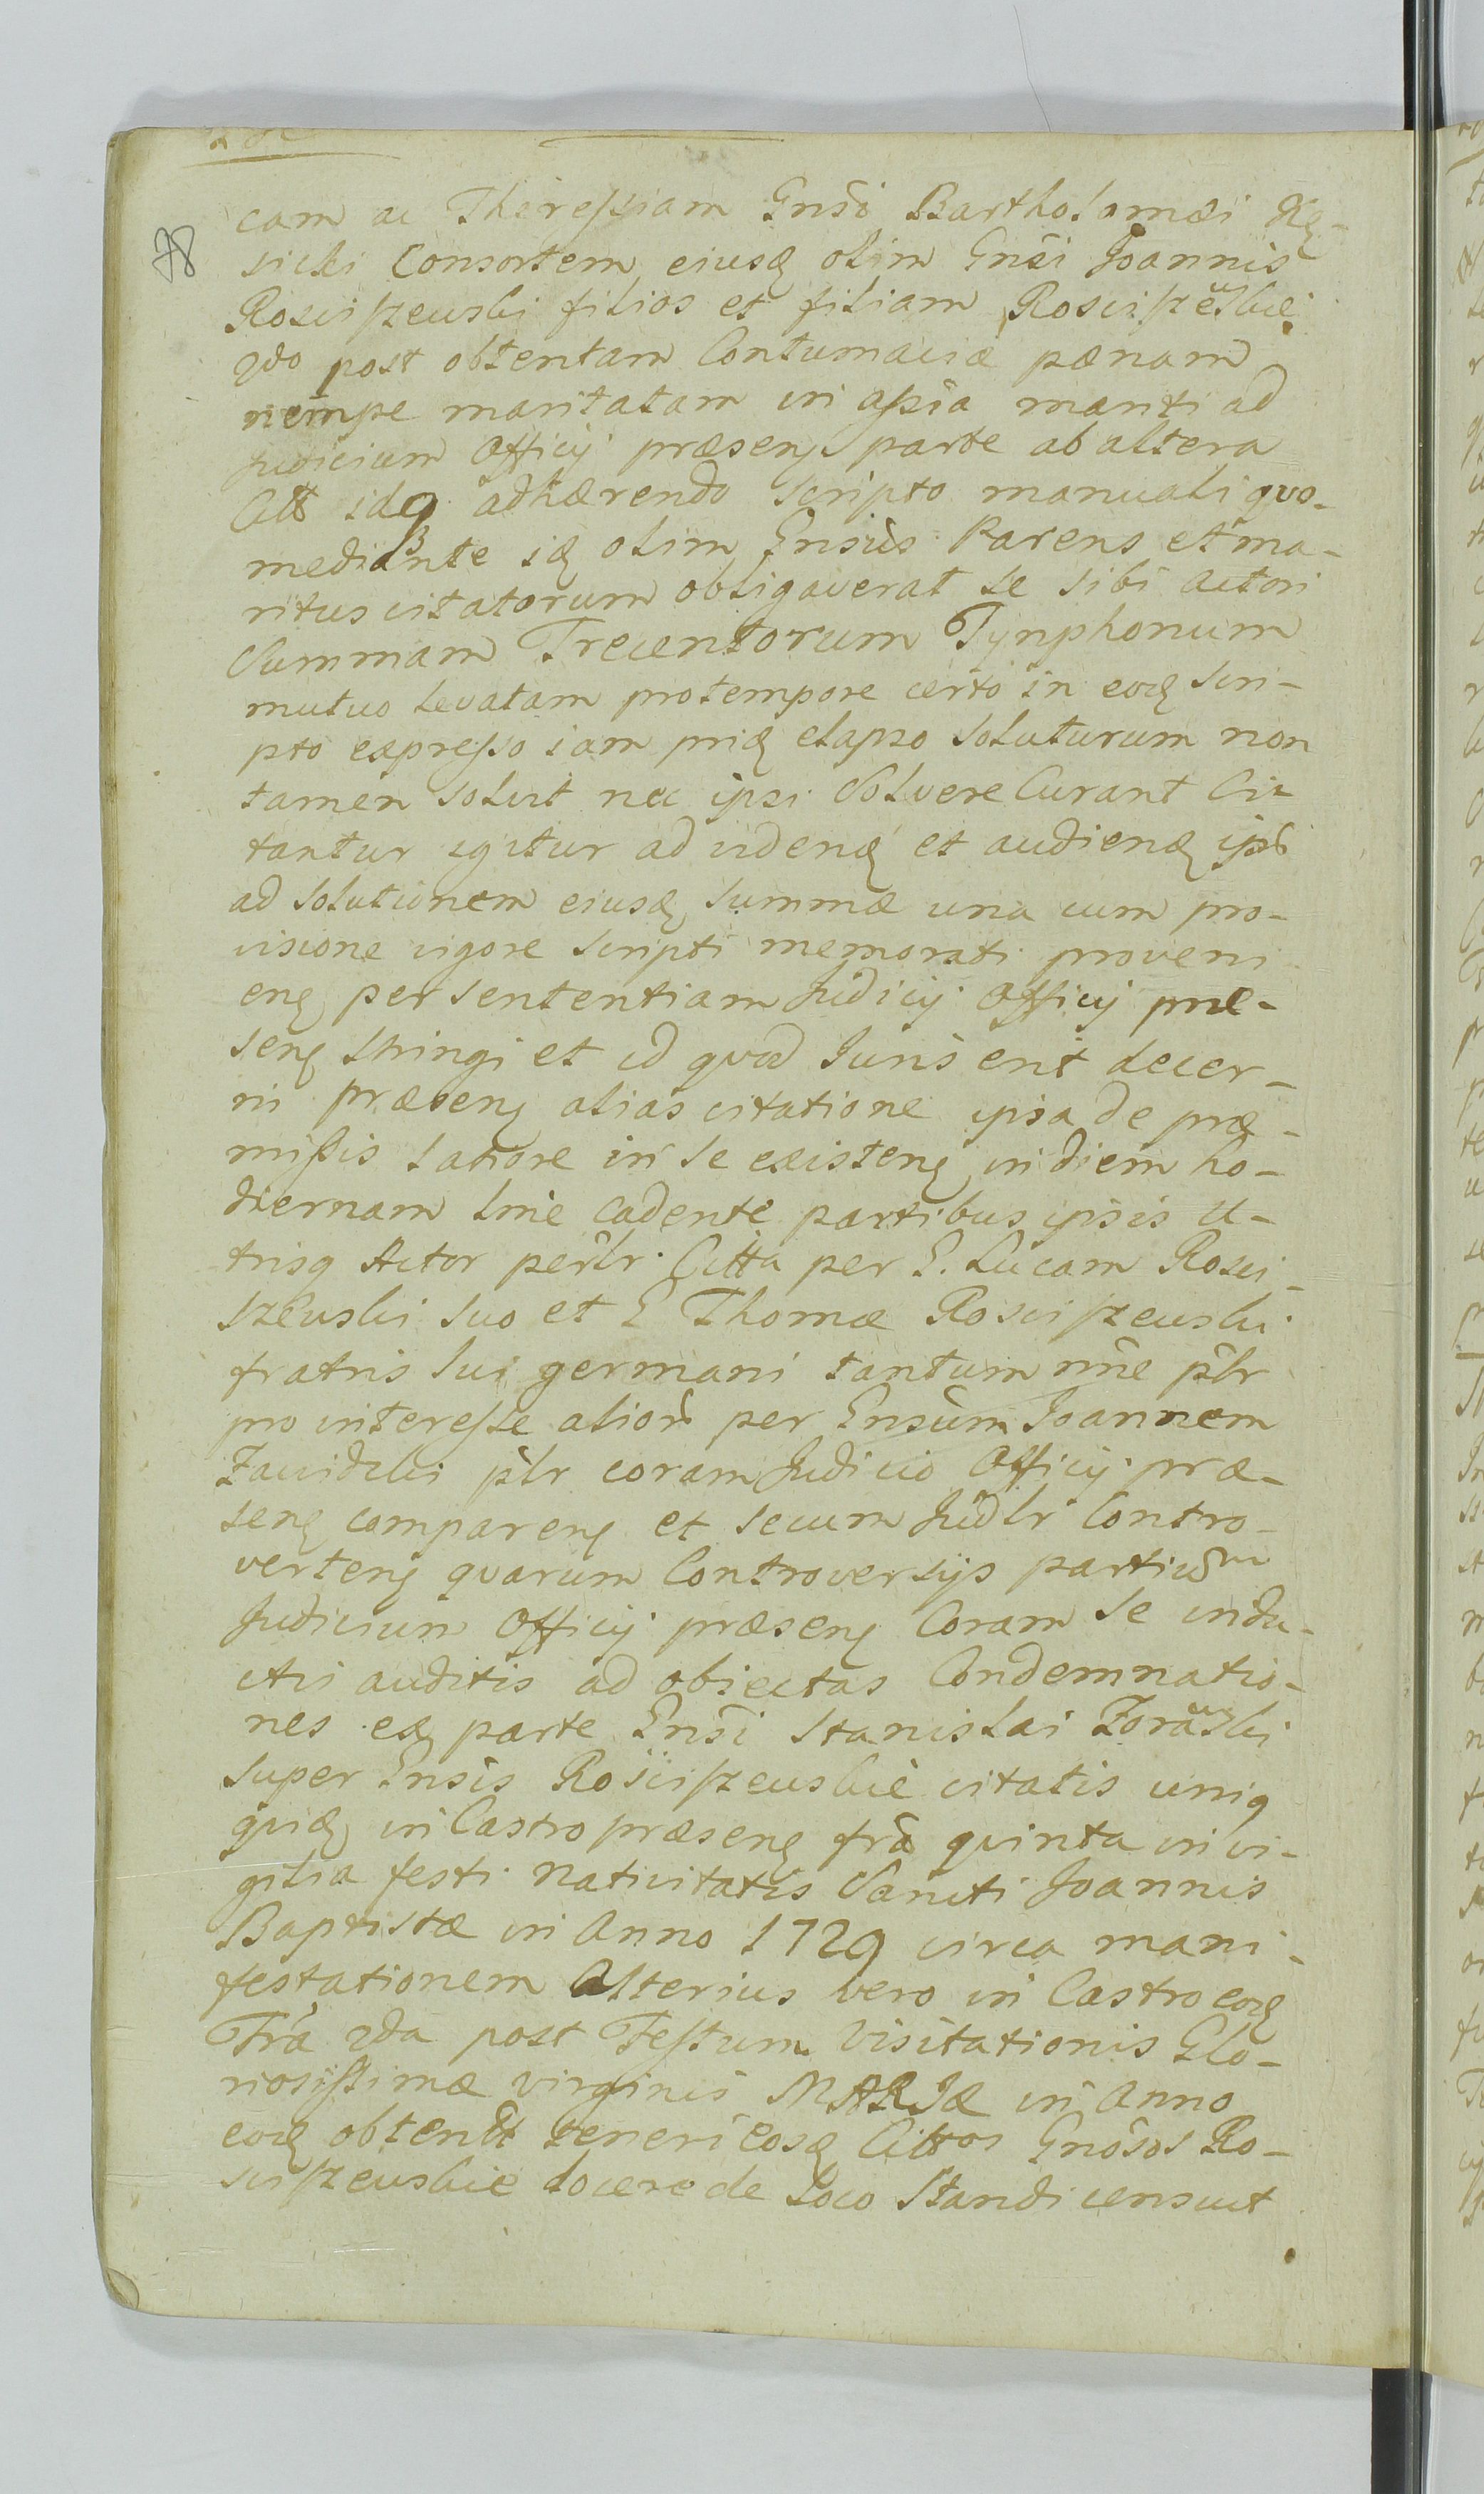 78
cam ac Theressiam Gnsi Bartholomæi Kę-
sicki Consortem eiusq olim Gnsi Joannis
Rosciszewski filios et filiam Rosciszewskie
2do post obtentam Contumaciæ pænam
nempe maritatam in assia mariti ad
Judicium Officij præsenς parte ab altera
Citt idq adhærendo scripto manuali quo-
mediante idς olim Gnsus Parens et ma-
ritus citatorum obligaverat se sibi Actori
Summam Trecentorum Tynphonum
mutuo levatam pro tempore certo in eodς scri-
pto expresso iam pridς elapso soluturum non
tamen solvit nec ipsi solvere Curant Ci-
tantur igitur ad videndς et audiendς ips
ad solutionem eiusdς summæ una cum pro-
visione vigore scripti memorati proveni
enς per sententiam Judicij Officij præ-
senς stringi et id quod Juris erit decer-
ni præsenς alias citatione ipsa de præ-
missis latiore in se existenς in diem ho-
diernam lme cadente partibus ipsis u-
trisq Actor persłr Citta per G. Lucam Rosci-
szewski suo et G Thomæ Rosciszewski
fratris sui germani tantum nne płr
pro interesse alior per Gnsum Joannem
Zawidzki płr coram Judicio Officij præ-
senς comparenς et secum Judlr Contro-
vertenς quarum Controversijs partium
Judicium Officij præsenς Coram se indu-
ctis auditis ad obiectas Condemnatio-
nes ex parte Gnsi Stanislai Zorawski
super Gnsis Rosciszewskie citatis uniq
quidς in Castro præsenς fra quinta in vi-
gilia festi Nativitatis Sancti Joannis
Baptistæ in Anno 1729 circa mani-
festationem Alterius vero in Castro eodς
Fra 2da post Festum Visitationis Glo-
riosissimæ virginis MARIÆ in Anno
eodς obtent teneri eosdς Cittos Gnosos Ro-
sciszewskie docere de Loco Standi censuit